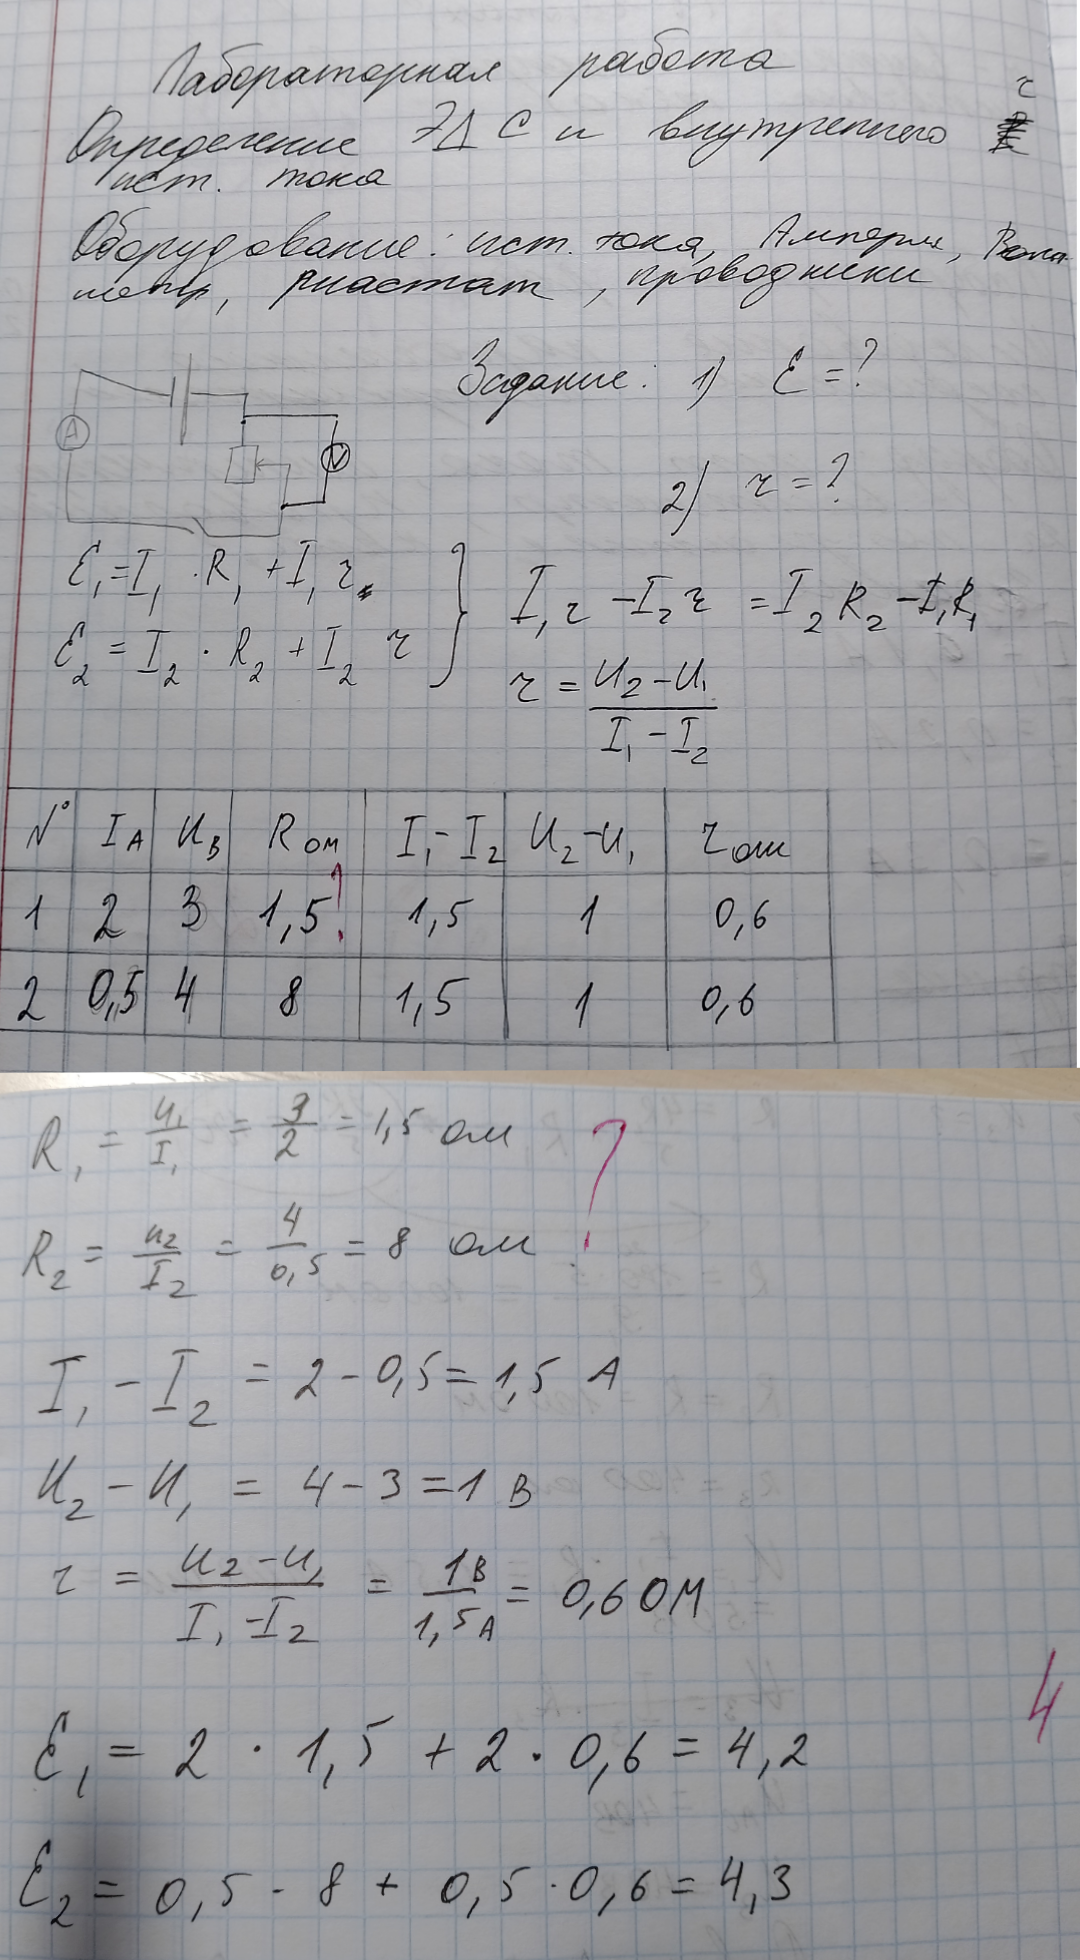 Лабораторная работа
Определение ЭДС и внутреннего r
ист. тока
Оборудование: ист. тока, Амперм, Вольт
метр, риастат, проводники
Задание: 1) ℰ = ?
2) r = ?
A
V
ℰ₁ = I₁ · R₁ + I₁ r
ℰ₂ = I₂ · R₂ + I₂ r
I₁ r − I₂ r = I₂ R₂ − I₁ R₁
r = U₂ − U₁ / I₁ − I₂
N° I A U В R ом I₁ − I₂ U₂ − U₁ r ом
1 2 3 1,5 ? 1,5 1 0,6
2 0,5 4 8 1,5 1 0,6
R₁ = U₁ / I₁ = 3 / 2 = 1,5 ом
?
R₂ = U₂ / I₂ = 4 / 0,5 = 8 ом
I₁ − I₂ = 2 − 0,5 = 1,5 А
U₂ − U₁ = 4 − 3 = 1 В
r = U₂ − U₁ / I₁ − I₂ = 1В / 1,5А = 0,6 ОМ
4
ℰ₁ = 2 · 1,5 + 2 · 0,6 = 4,2
ℰ₂ = 0,5 · 8 + 0,5 · 0,6 = 4,3